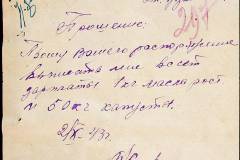 Прошение.
Прошу Вашего распоряжение
выписать мне в счет
зарплаты 1 кг масла рост
и 50 кг капусты.
2/IX-43 г.